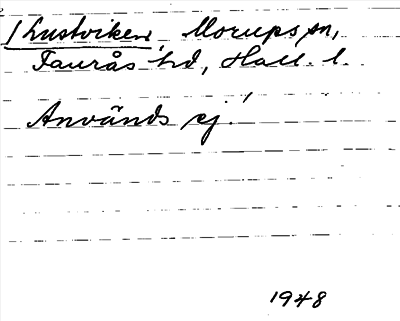 / Lustviken, Morups sn,
Faurås hd, Hall. l.
Används ej!
1948